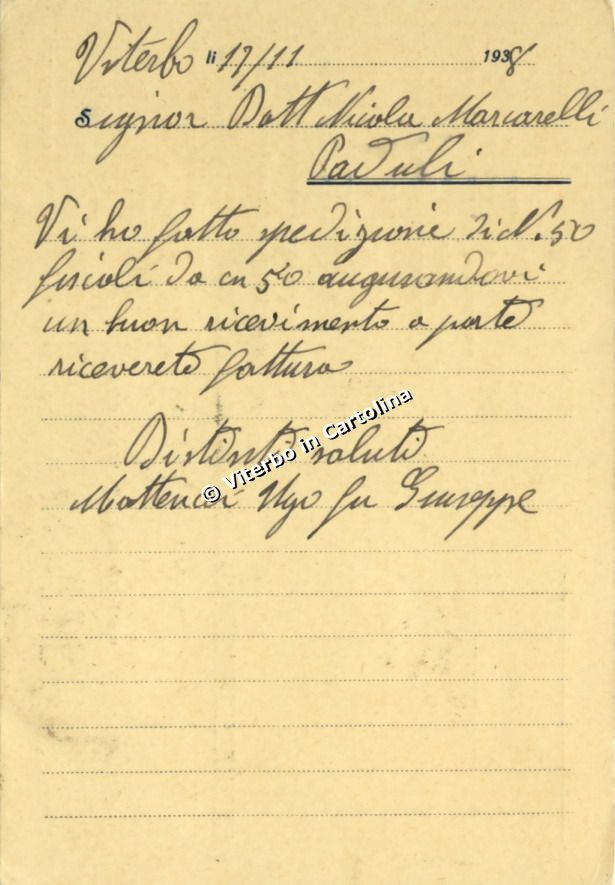 Viterbo li 17/11 1938
Signor Dott Nicola Marcarelli
Paduli
Vi ho fatto spedizione di N. 50
fiscoli da cm 50 augurandovi
un buon ricevimento a parte
riceverete fattura
Distinti saluti
© Viterbo in Cartolina
Matteucci Ugo fu Giuseppe